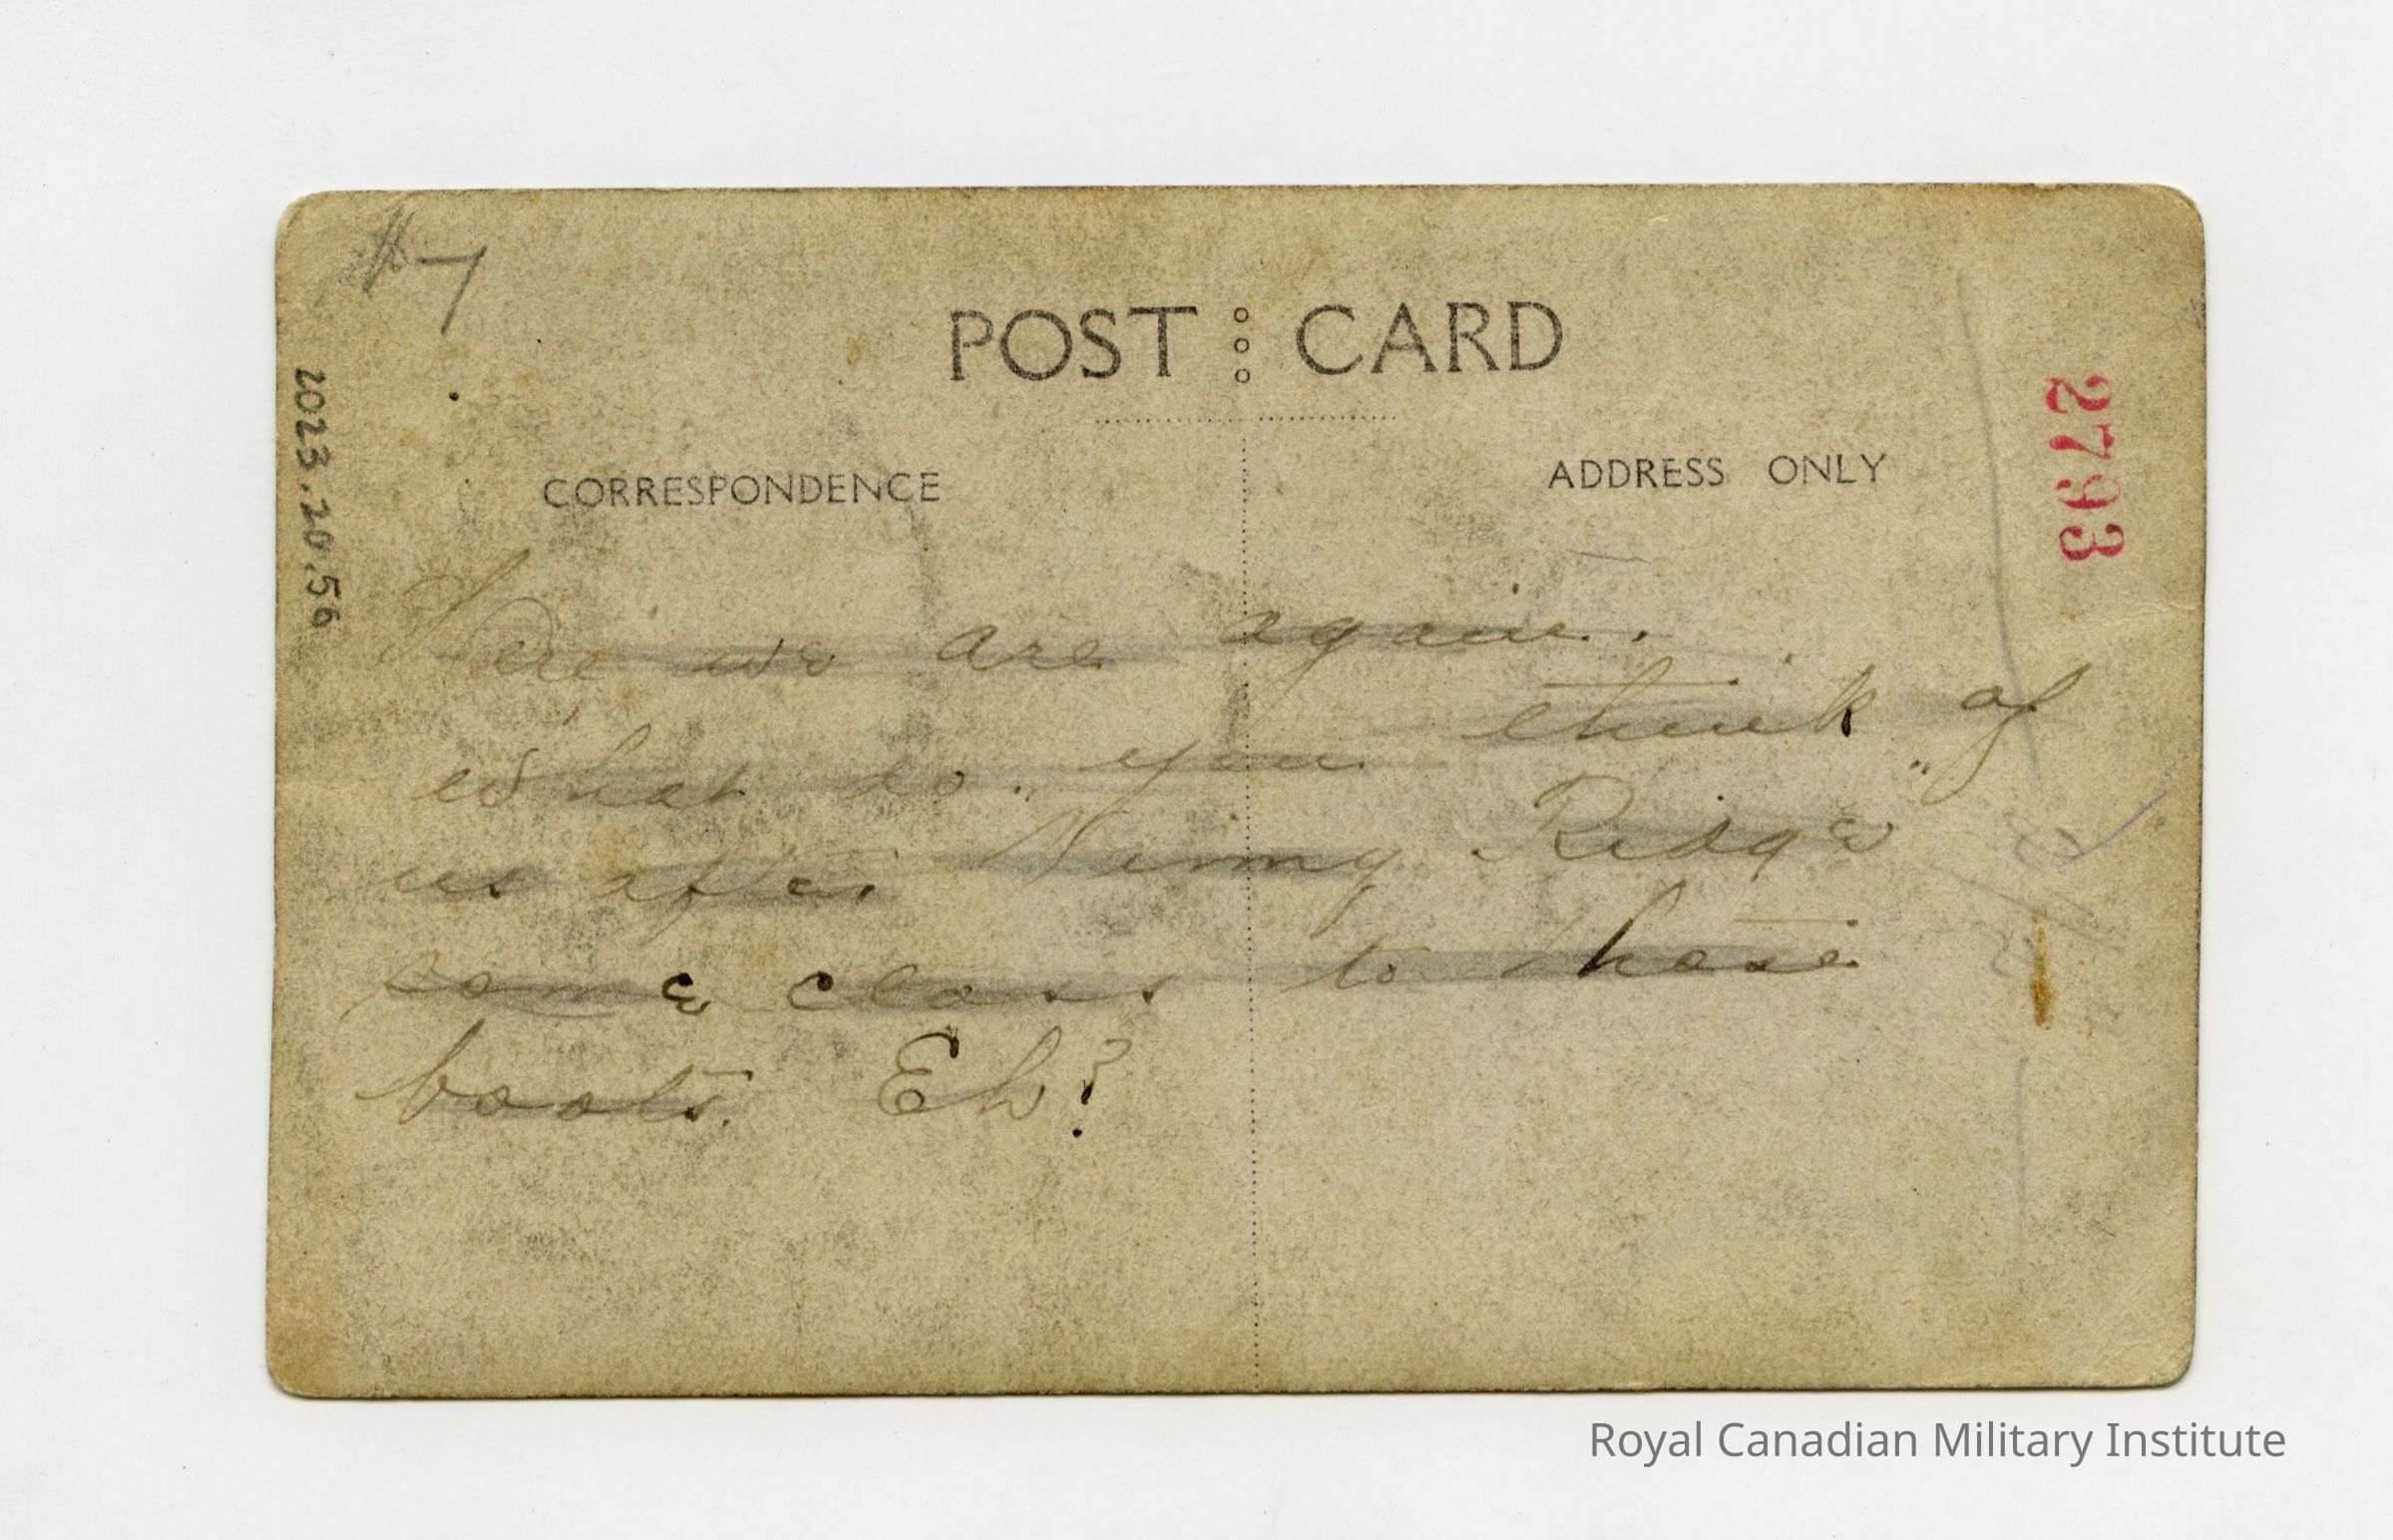 #7
POST CARD
CORRESPONDENCE
ADDRESS ONLY
2023.20.56
2793
Here we are again.
What do you think of
us after "Vimy Ridge"
some class to those
boots. Eh?
Royal Canadian Military Institute